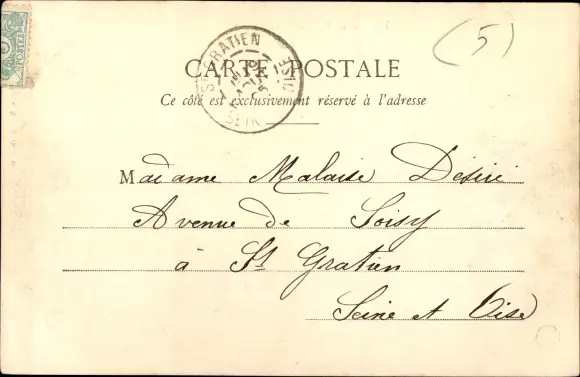 (5)
POSTES
ST GRATIEN
SEINE
CARTE POSTALE
Ce côté est exclusivement réservé à l'adresse
Madame Malaise Désiré
Avenue de Soisy
à St Gratien
Seine et Oise